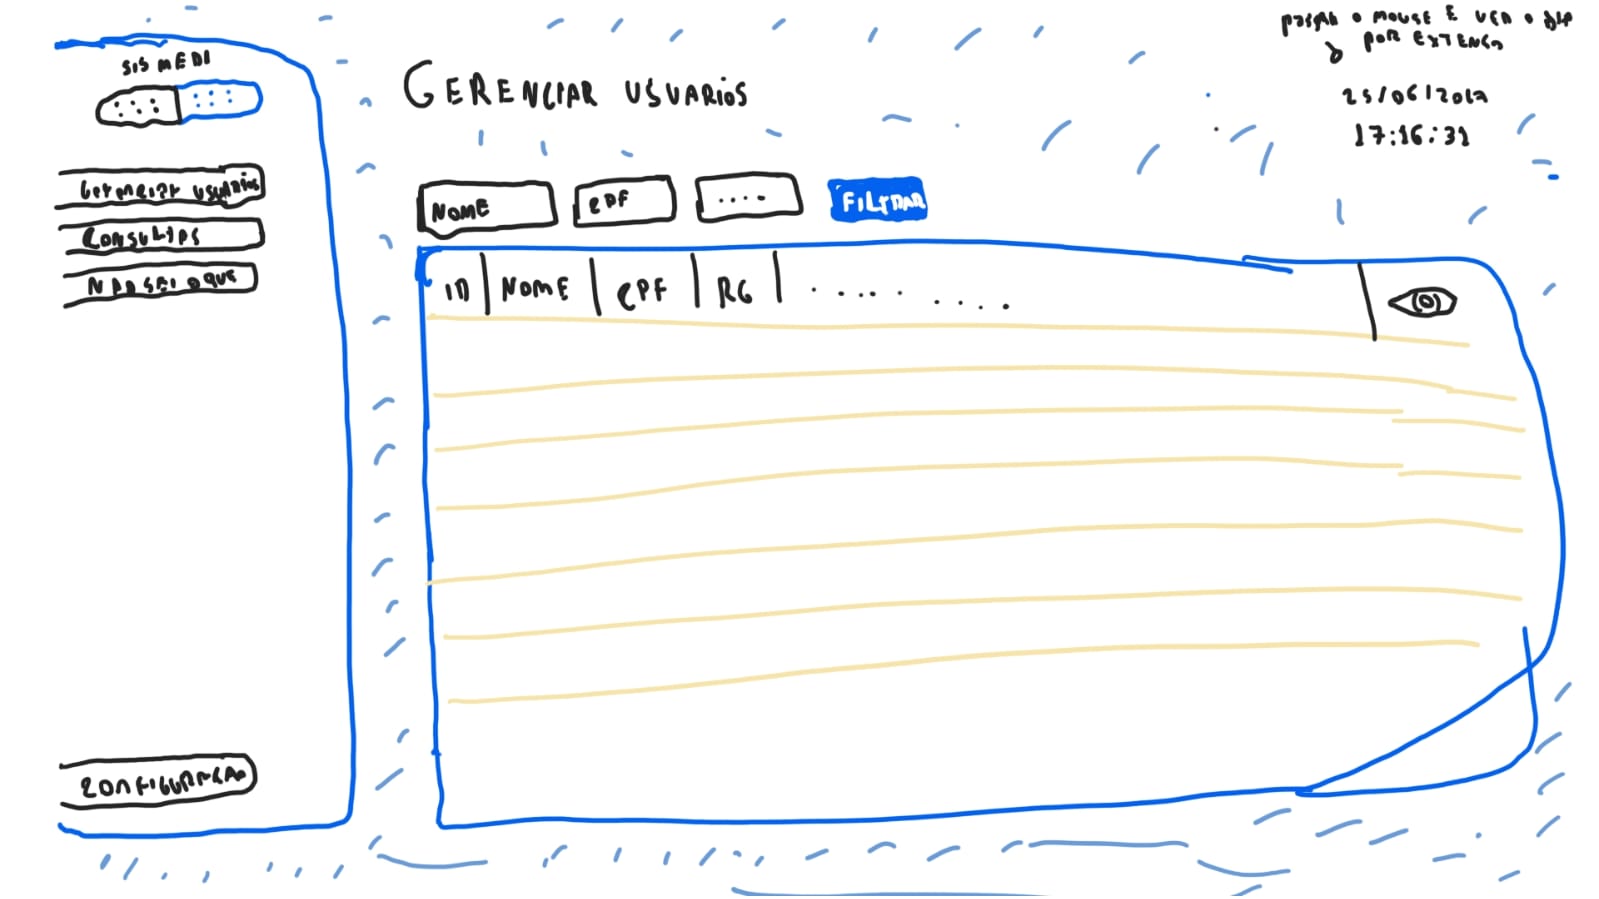 SISMEDI
GERENCIAR USUARIOS
CONSULTAS
NAO SEI O QUE
CONFIGURACAO
GERENCIAR USUARIOS
PASSAR O MOUSE E VER O DIA
POR EXTENSO
25/06/2017
17:16:31
NOME
CPF
....
FILTRAR
ID NOME CPF RG